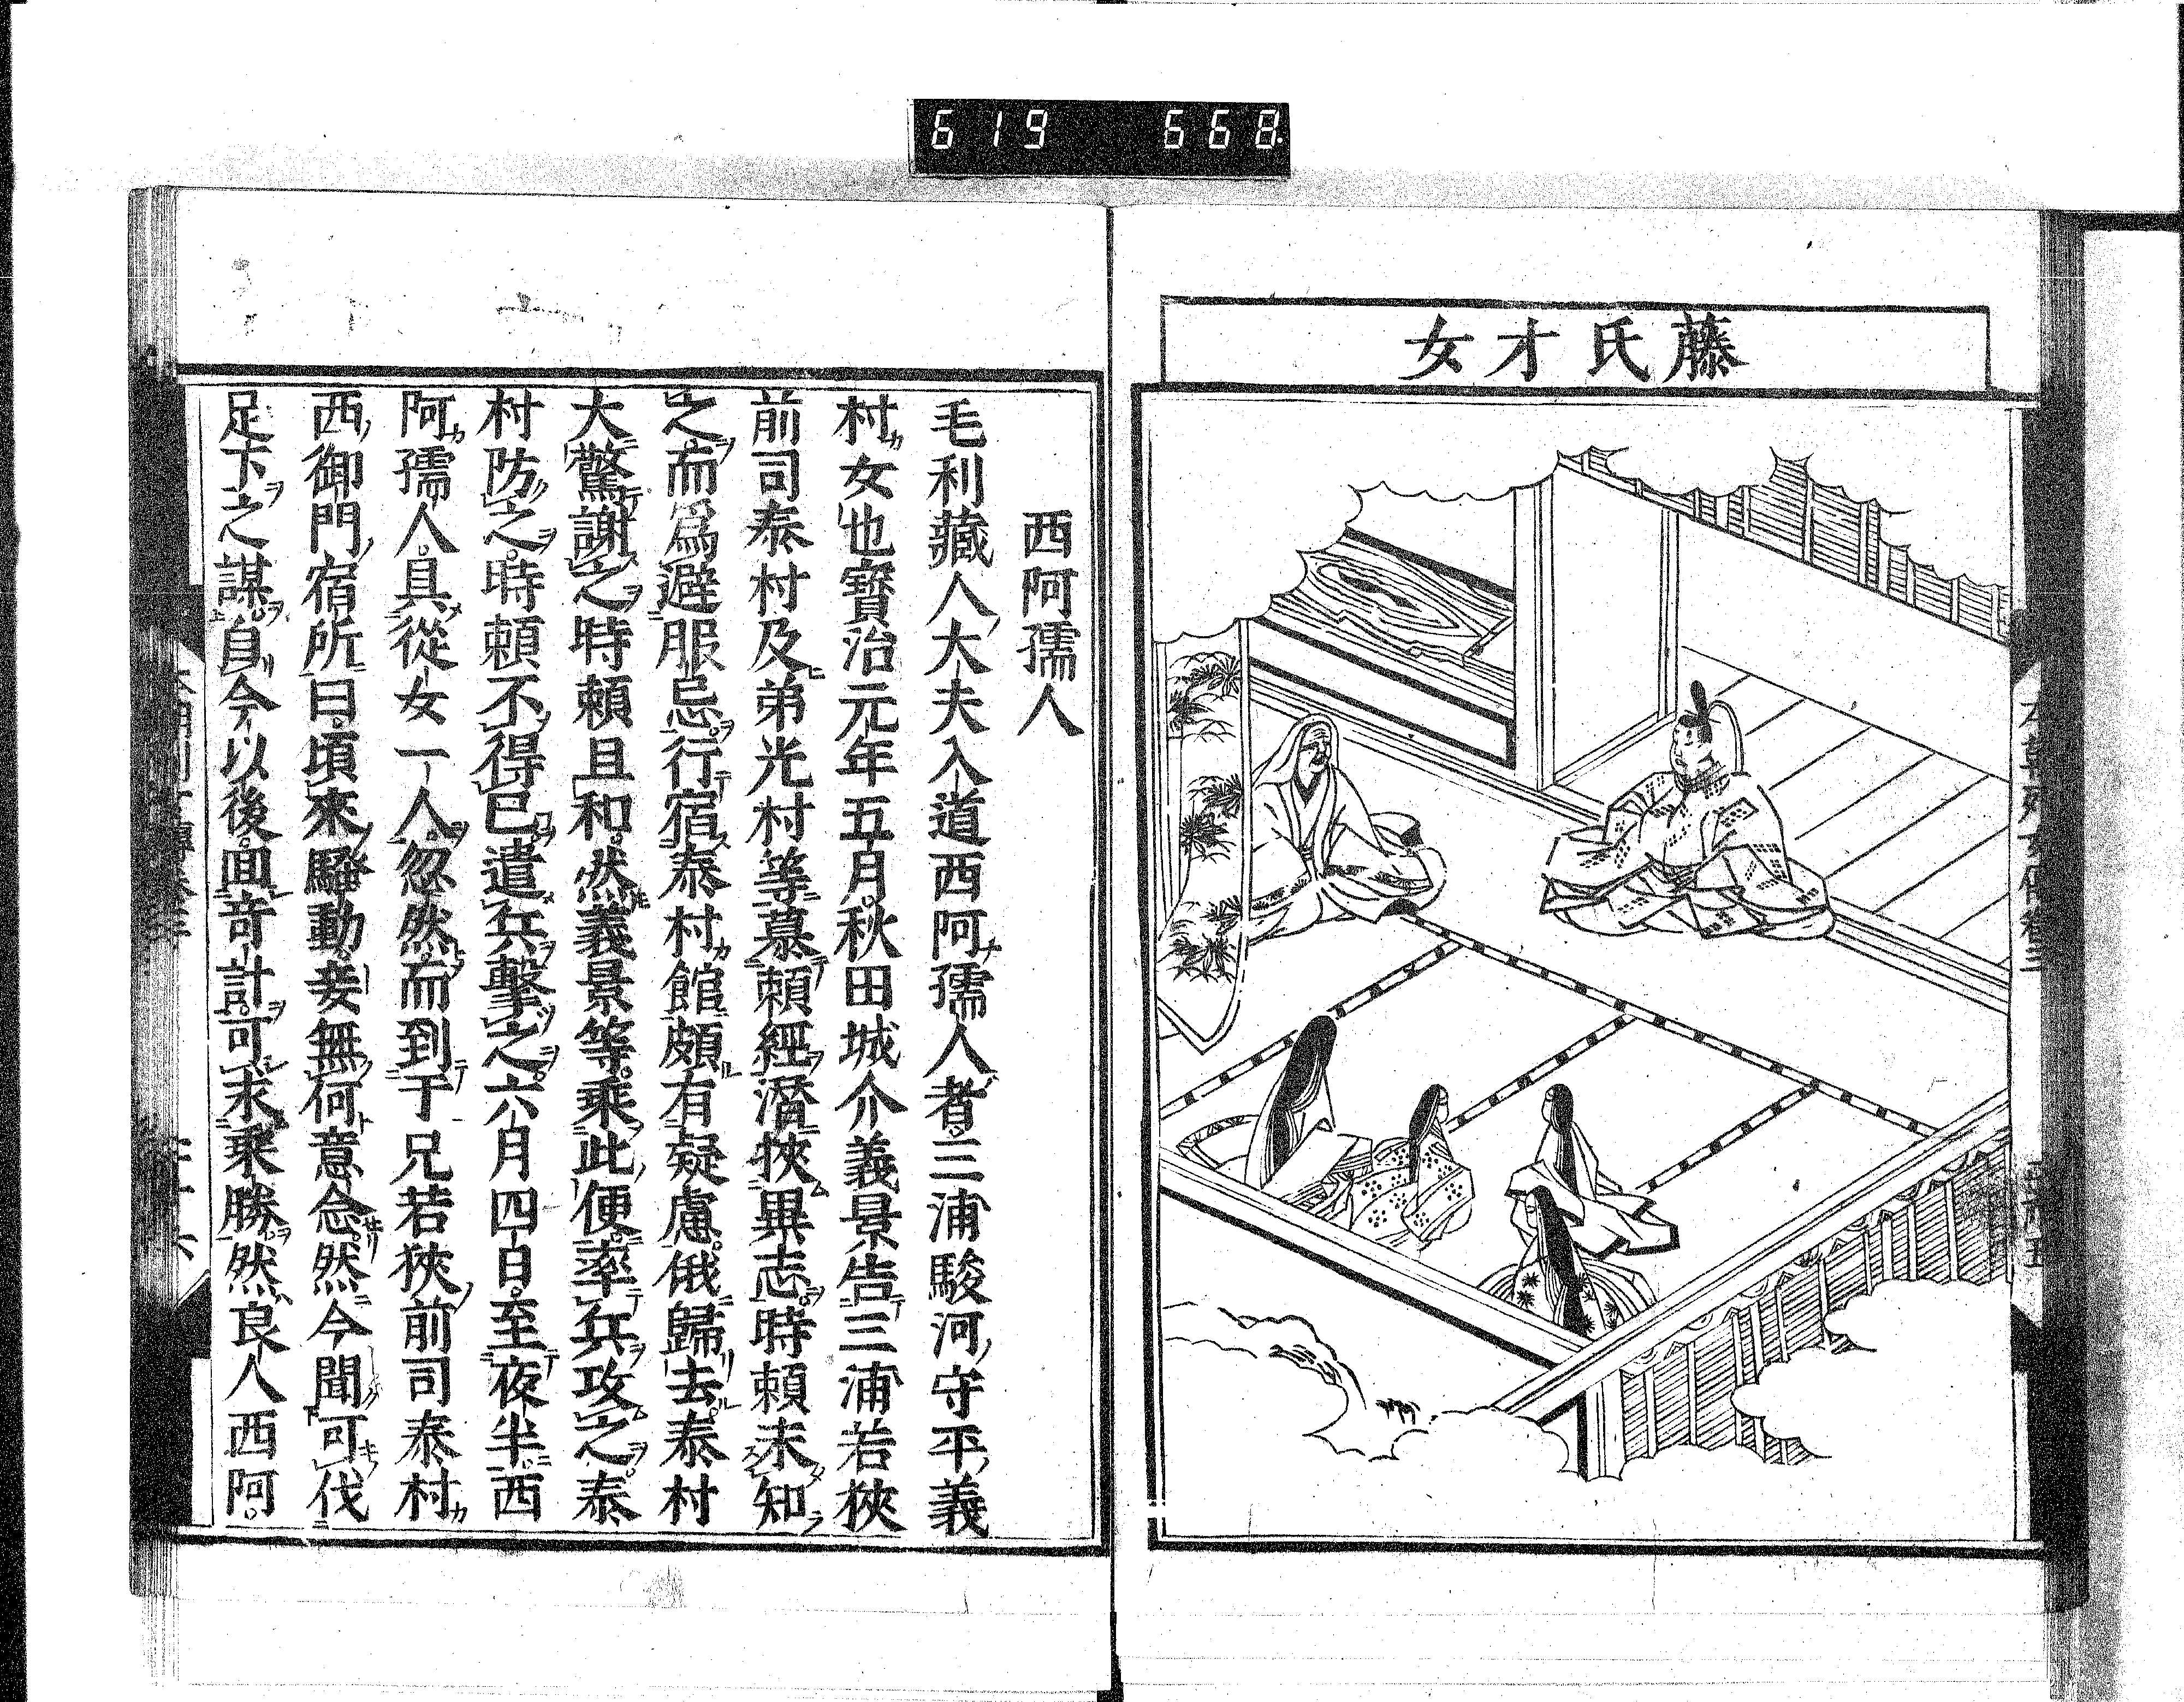 619 668
藤氏才女
西阿孺人
毛利藏人大夫入道西阿孺人者三浦駿河守平義
村女也寳治元年五月秋田城介義景告三浦若狹
前司泰村及弟光村等慕頼經潛挾異志時頼未知
之而爲避服忌行宿泰村館頗有疑慮俄歸去泰村
大驚謝之時頼且和然義景等乘此便率兵攻之泰
村防之時頼不得已遣兵擊之六月四日至夜半西
阿孺人具從女一人忽然而到于兄若狹前司泰村
西御門宿所曰頃來騷動妾無何意念然今聞可伐
足下之謀自今以後回奇計可求乘勝然良人西阿